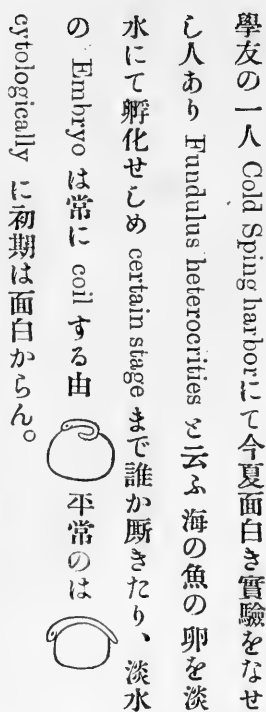 學友の一人 Cold Sping harbor にて今夏面白き實驗をなせ
し人あり Fundulus heterocrities と云ふ海の魚の卵を淡
水にて孵化せしめ certain stage まで誰か厮きたり、淡水
の Embryo は常に coil する由 平常のは
cytologically に初期は面白からん。